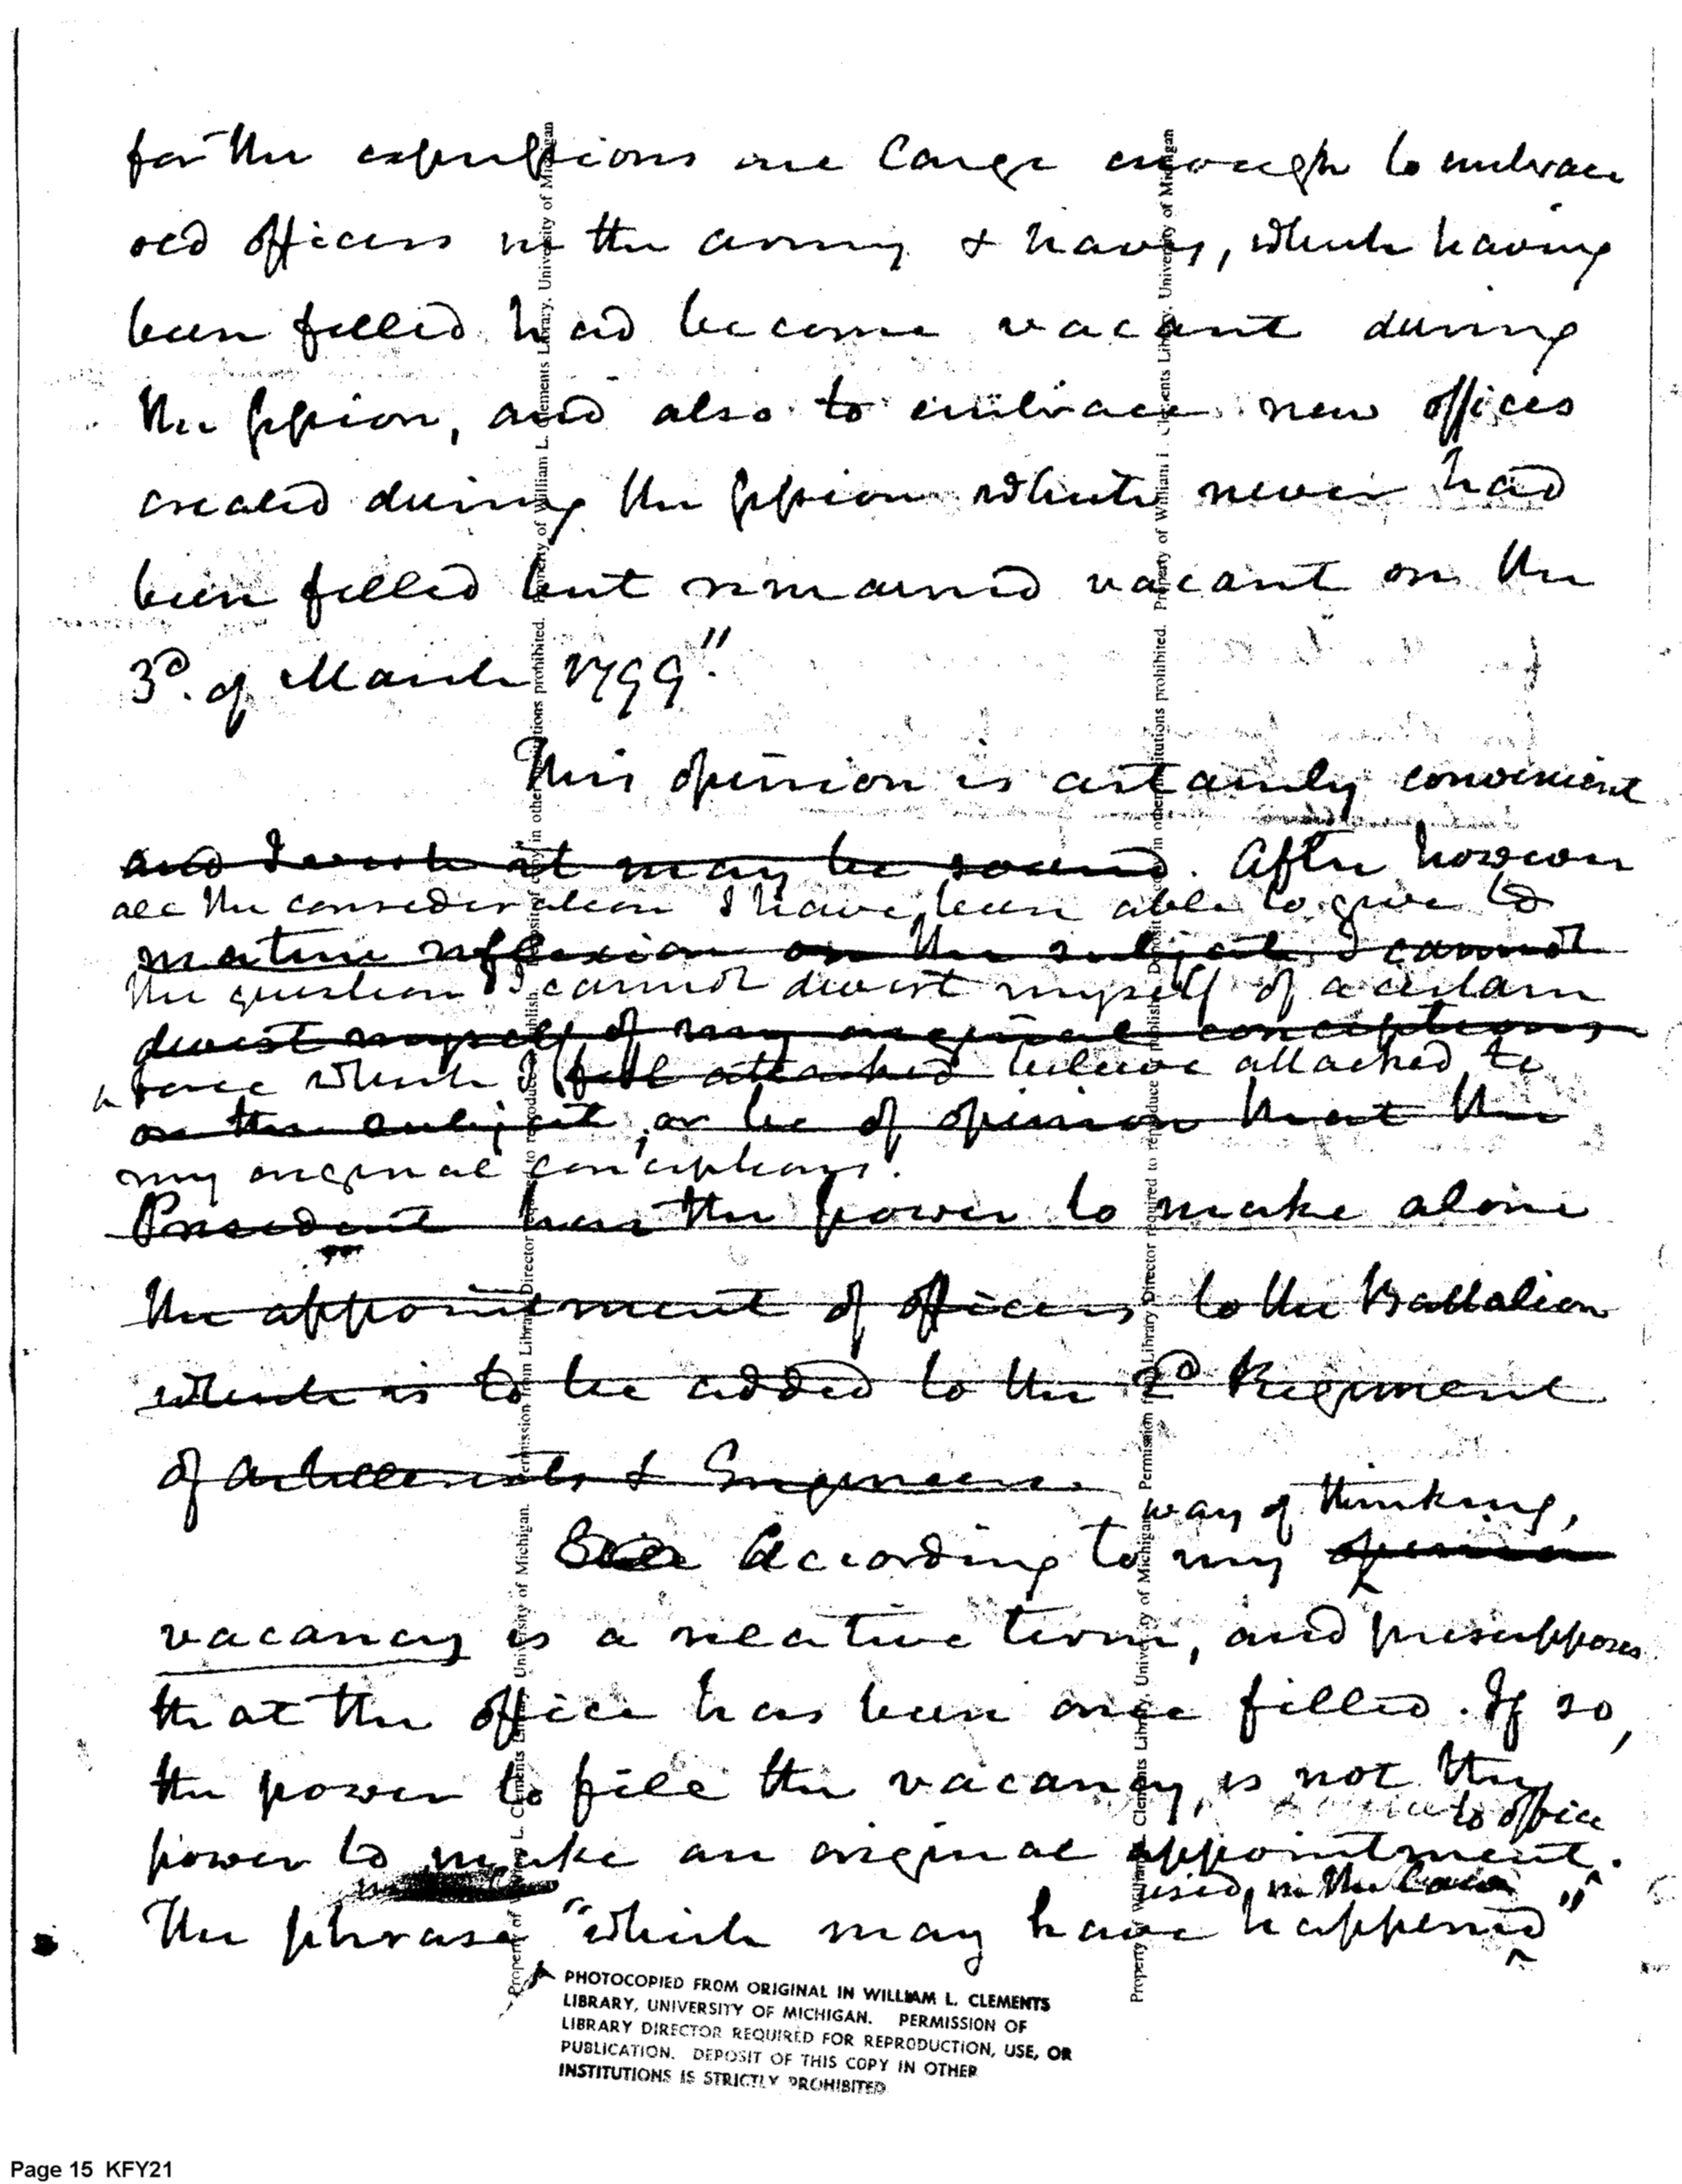 for the expressions are large enough to embrace
old offices in the army & navy, which having
been filled had become vacant during
the session, and also to embrace new offices
created during the session which never had
been filled but remained vacant on the
3d. of March 1799."
This opinion is certainly convenient
and I wish it may be sound. After however
all the consideration I have been able to give to
mature reflexion on the subject I cannot
the question I cannot divest myself of a certain
divest myself of my original conceptions
force which I feel attached believe attached to
on the subject, or be of opinion that the
my original conceptions.
President has the power to make alone
the appointment of officers to the Battalion
which is to be added to the 2d Regiment
of Artillerists & Engineers.
way of thinking,
According to my opinion
vacancy is a relative term, and presupposes
that the office has been once filled. If so,
the power to fill the vacancy, is not the
to office
power to make an original appointment.
used in the law
The phrase "which may have happened"
PHOTOCOPIED FROM ORIGINAL IN WILLIAM L. CLEMENTS
LIBRARY, UNIVERSITY OF MICHIGAN. PERMISSION OF
LIBRARY DIRECTOR REQUIRED FOR REPRODUCTION, USE, OR
PUBLICATION. DEPOSIT OF THIS COPY IN OTHER
INSTITUTIONS IS STRICTLY PROHIBITED
Property of William L. Clements Library, University of Michigan. Permission from Library Director required to reproduce or publish. Deposit of copy in other institutions prohibited. Property of William L. Clements Library, University of Michigan
Property of William L. Clements Library, University of Michigan. Permission from Library Director required to reproduce or publish. Deposit of copy in other institutions prohibited. Property of William L. Clements Library, University of Michigan
Page 15 KFY21